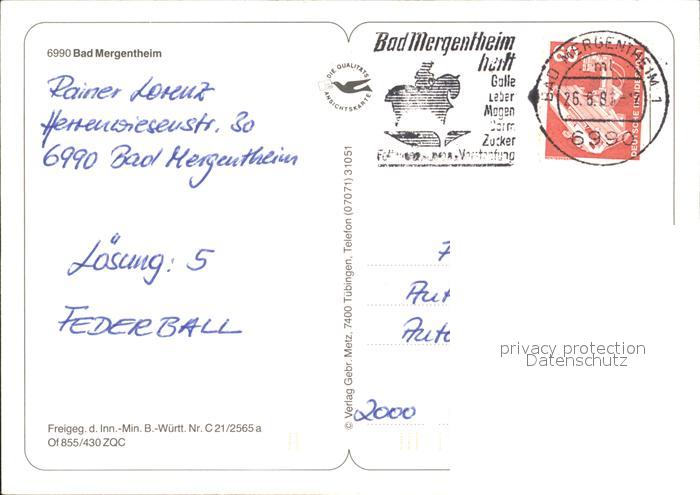 6990 Bad Mergentheim
Rainer Lorenz
Herrenwiesenstr. 30
6990 Bad Mergentheim
Lösung: 5
FEDERBALL
Freigeg. d. Inn.-Min. B.-Württ. Nr. C 21/2565 a
Of 855/430 ZQC
DIE QUALITÄTS
ANSICHTSKARTE
© Verlag Gebr. Metz, 7400 Tübingen, Telefon (07071) 31051
Bad Mergentheim
hilft
Galle
Leber
Magen
Darm
Zucker
Verstopfung
BAD MERGENTHEIM 1
26.8.8
6990
80
DEUTSCHE BUNDES
Aut
Auto
2000
privacy protection
Datenschutz